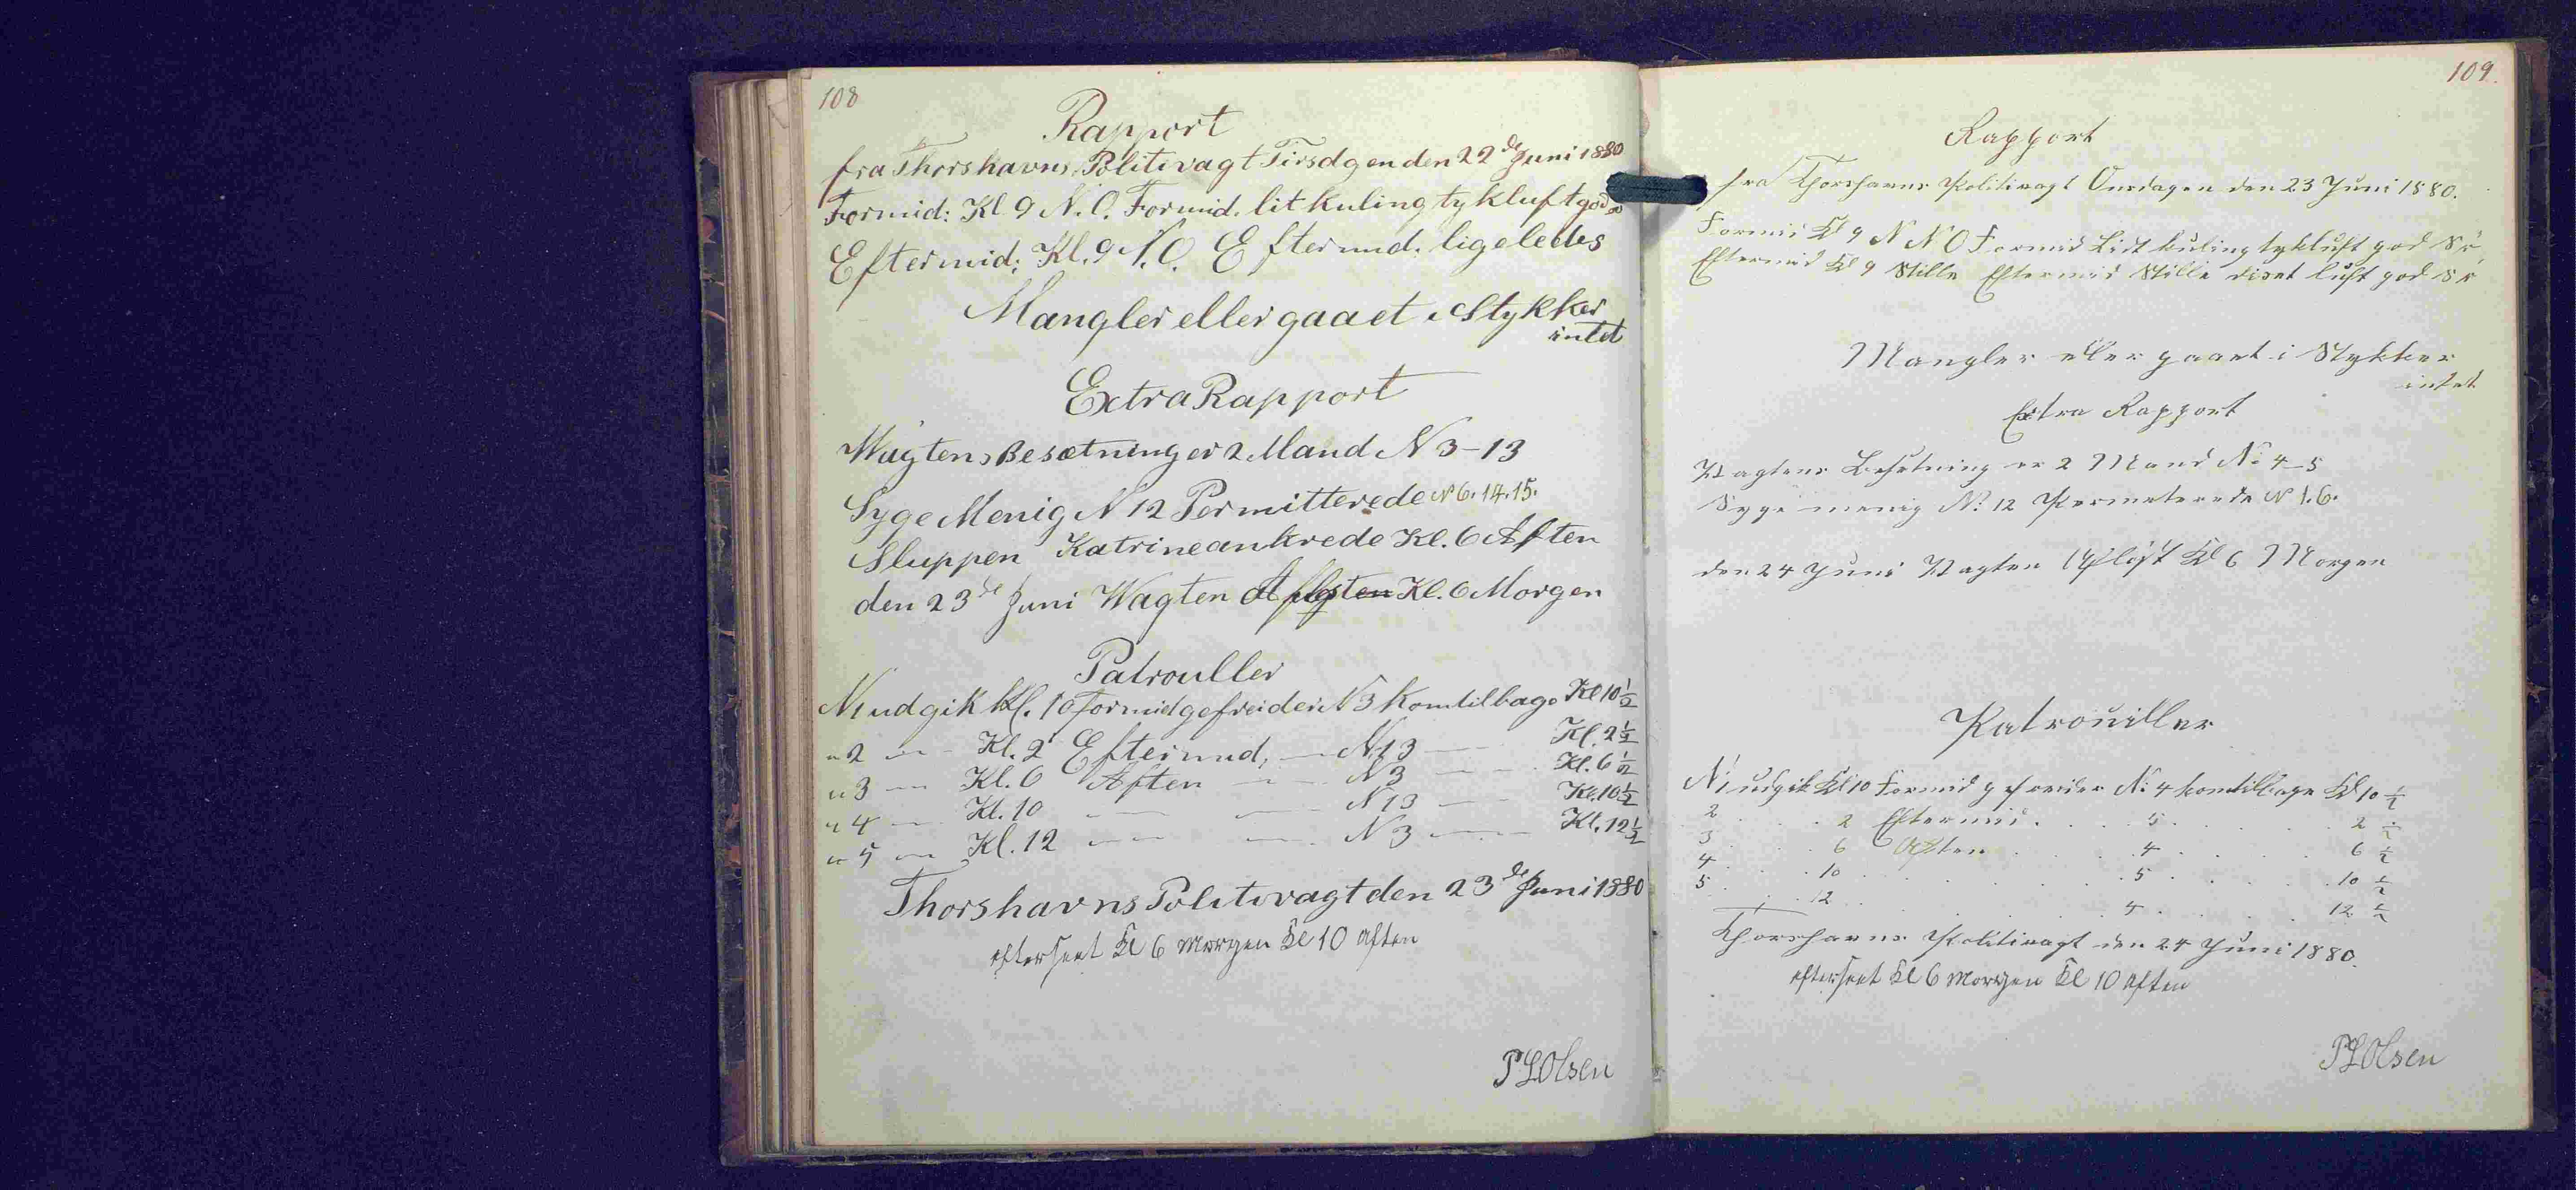 108
Rapport
fra Thorshavns Politivagt Tirsdgen den 22de Juni 1880
Formid: Kl 9 N.O. Formid. lit kuling tykluft god
Eftermid: Kl. 9 N.O. Eftermid. ligeledes
Mangler eller gaaet i Stykker
intet
Extra Rapport
Wagtens Besætning er 2 Mand N 3-13
Syge Menig N 12 Permitterede N 6. 14. 15.
Sluppen Katrine ankrede Kl. 6 Aften
den 23de Juni Wagten Kl. 6 Morgen
Patrouller
N1 udgik Kl. 10 Formid gefreider N3 kom tilbage Kl 10 1/2
" 2 — Kl. 2 Eftermid, — N13 — Kl. 2 1/2
" 3 — Kl. 6 Aften — N3 — Kl. 6 1/2
" 4 — Kl. 10 — — N13 — Kl. 10 1/2
" 5 — Kl. 12 — — N3 — Kl. 12 1/2
Thorshavns Politivagt den 23de Juni 1880
efterseet Kl 6 Morgen Kl 10 aften
P L Olsen
109.
Rapport
fra Thorshavns Politivagt Onsdagen den 23 Juni 1880.
Formid Kl 9 N N O Formid Lidt kuling tykluft god Sø
Eftermid Kl 9 Stille Eftermid Stille diset luft god Sø
Mangler eller gaaet i Stykker
intet
Extra Rapport
Vagtens Besetning er 2 Mand No 4-5
Syge menig No 12 Permeterede N 1.6.
den 24 Juni Vagten Afløst Kl 6 Morgen
Patrouiller
No 1 udgik Kl 10 Formid gefreider No 4 kom tilbage Kl 10 1/2
2 . . 2 Eftermid . . 5 . . 2 1/2
3 . . 6 Aften . . 4 . . 6 1/2
4 . . 10 . . 5 . . 10 1/2
5 . . 12 . . 4 . . 12 1/2
Thorshavns Politivagt den 24 Juni 1880.
efterseet Kl 6 Morgen Kl 10 aften
P L Olsen